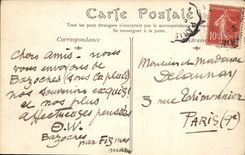 Carte Postale
Tous les pays étrangers n'acceptent pas la correspondance au recto
Se renseigner à la poste
Correspondance
Chers Amis - nous
vous envoyons de
Bazoches
nos souvenirs exquis
et nos plus
affectueuses pensées
Bazoches
par Fismes
marne
Monsieur et Madame
Delaunay
3 rue
PARIS
10